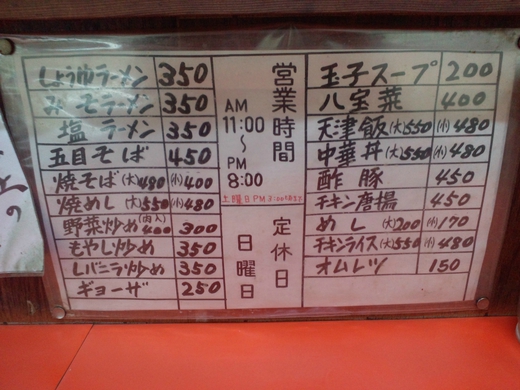 しょうゆラーメン 350
みそラーメン 350
塩ラーメン 350
五目そば 450
焼そば(大)480 (小)400
焼めし(大)550 (小)480
野菜炒め(肉入)400 300
もやし炒め 350
レバニラ炒め 350
ギョーザ 250
営業時間
AM
11:00
〜
PM
8:00
土曜日PM3:00まで
定休日
日曜日
玉子スープ 200
八宝菜 400
天津飯(大)550 (小)480
中華丼(大)550 (小)480
酢豚 450
チキン唐揚 450
めし(大)200 (小)170
チキンライス(大)550 (小)480
オムレツ 150
の